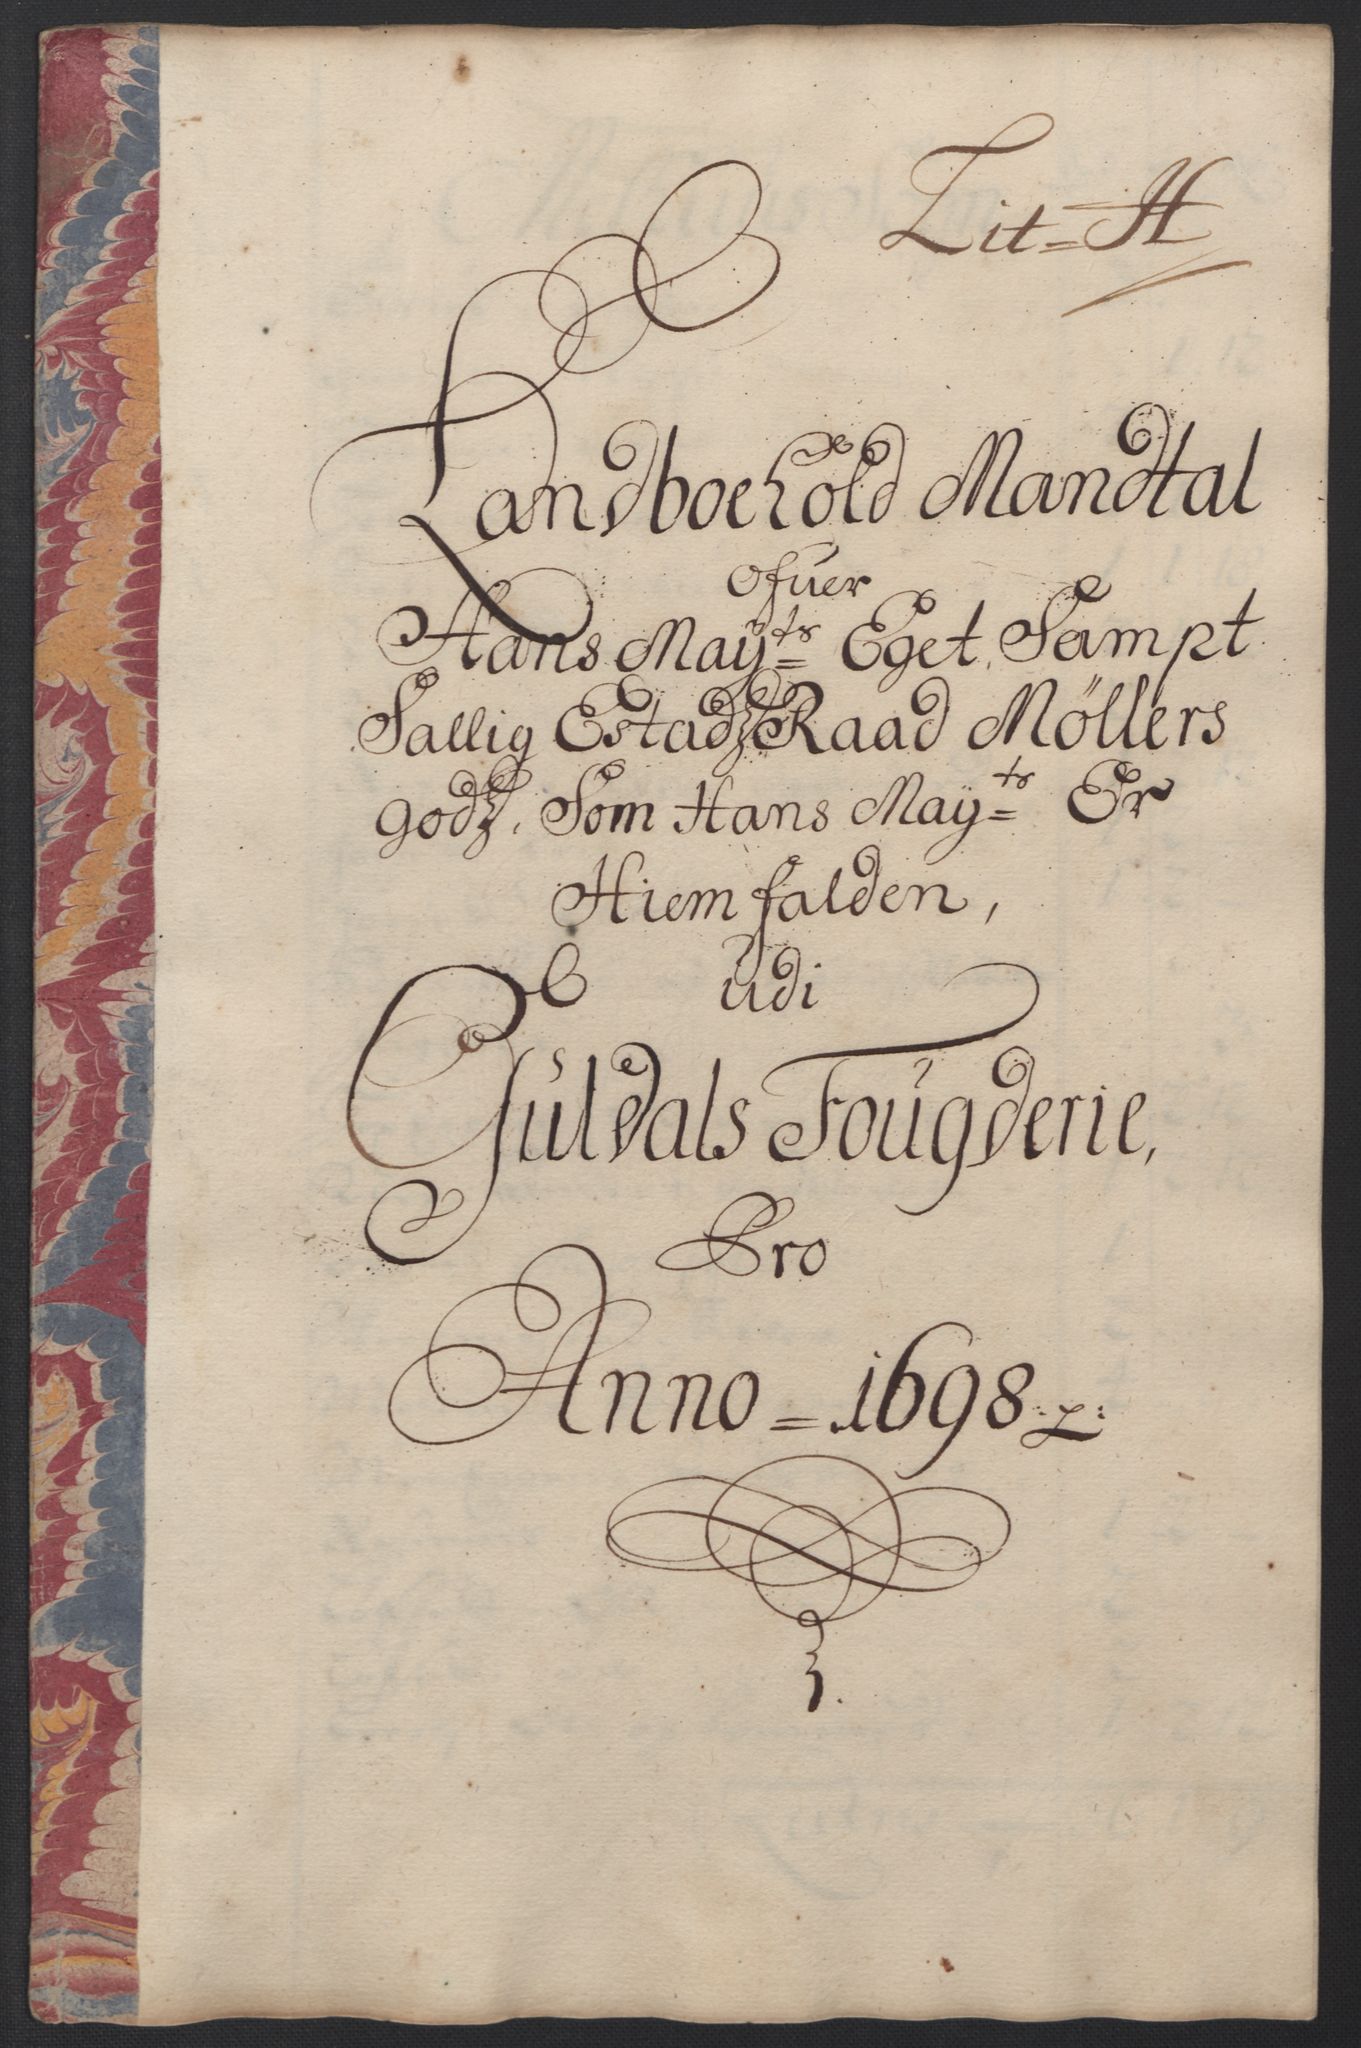 Lit=H
Landboehold Mandtal
ofuer
Hans Maÿ=ts Eget, Sampt
Sallig EstadzRaad Möllers
godz, Som Hans Maÿ=ts Er
Hiemfalden,
udi
Guldals Fougderie,
Pro
Anno=1698